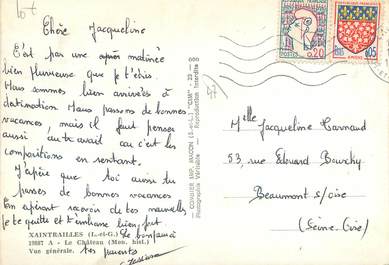 Chère Jacqueline
C'est par une après matinée
bien pluvieuse que je t'écris
Nous sommes bien arrivés à
destination Nous passons de bonnes
vacances, mais il faut penser
aussi au travail car c'est les
compositions en rentrant.
J'espère que toi aussi tu
passes de bonnes vacances
En espérant recevoir de tes nouvelles
je te quitte et t'embrasse bien fort
Le bonjour à
tes parents
XAINTRAILLES (L.-et-G.)
19887 A - Le Château (Mon. hist.)
Vue générale.
COMBIER IMP. MACON (S.-et-L.) "CIM"
Photographie Véritable - Reproduction Interdite
REPUBLIQUE FRANCAISE
POSTES
0,20
0,05
AMIENS
Melle Jacqueline Carnaud
53, rue Edouard Bourchy
Beaumont s/oise
(Seine-Oise)